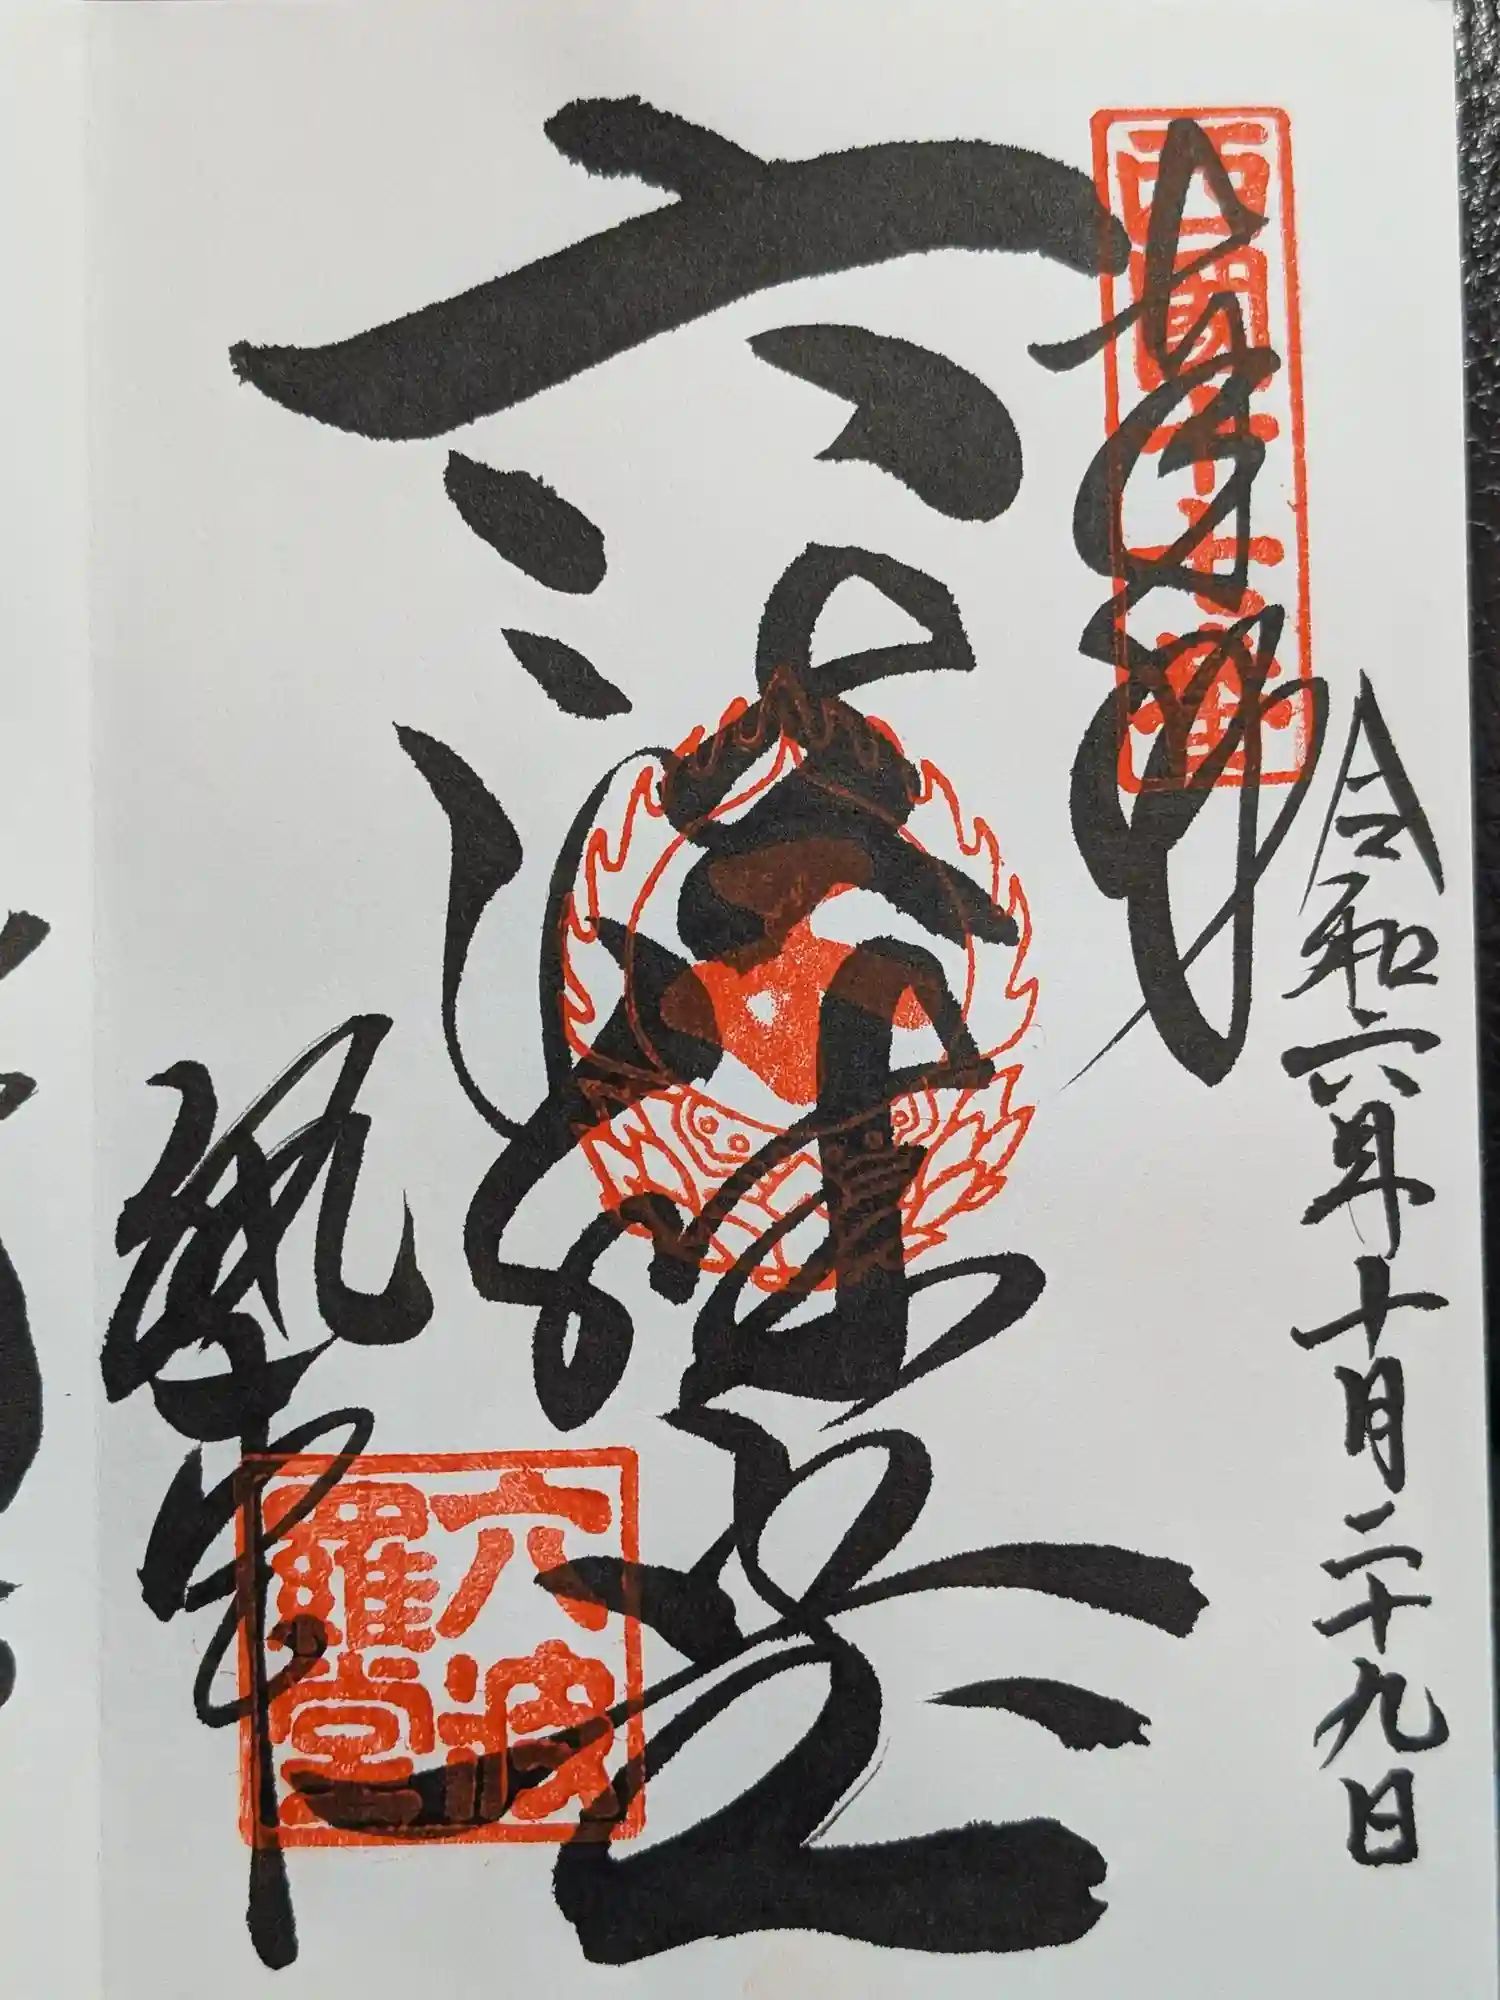 令和六年十月二十九日
奉拝
西國十七番
六波羅堂
六波
羅堂